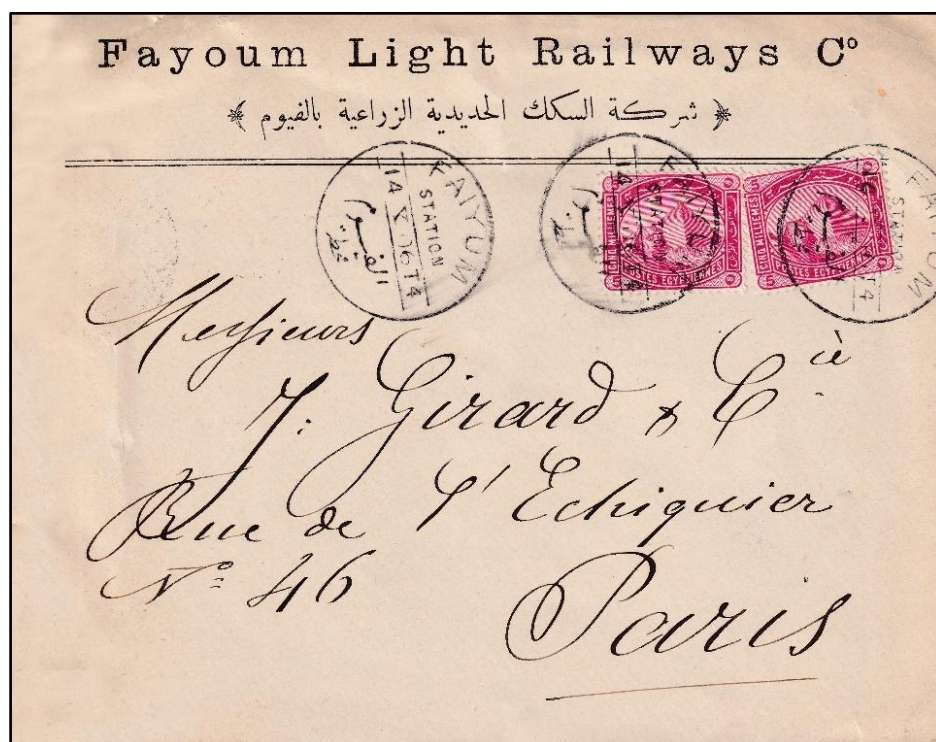 Fayoum Light Railways Cº
شركة السكك الحديدية الزراعية بالفيوم
FAIYUM
STATION
14 X 06 T4
الفيوم
محطة
FAIYUM
STATION
14
FAIYUM
STATION
T4
POSTES EGYPTIENNES
POSTES EGYPTIENNES
Messieurs
J. Girard & Cie
Rue de l'Echiquier
Nº 46
Paris